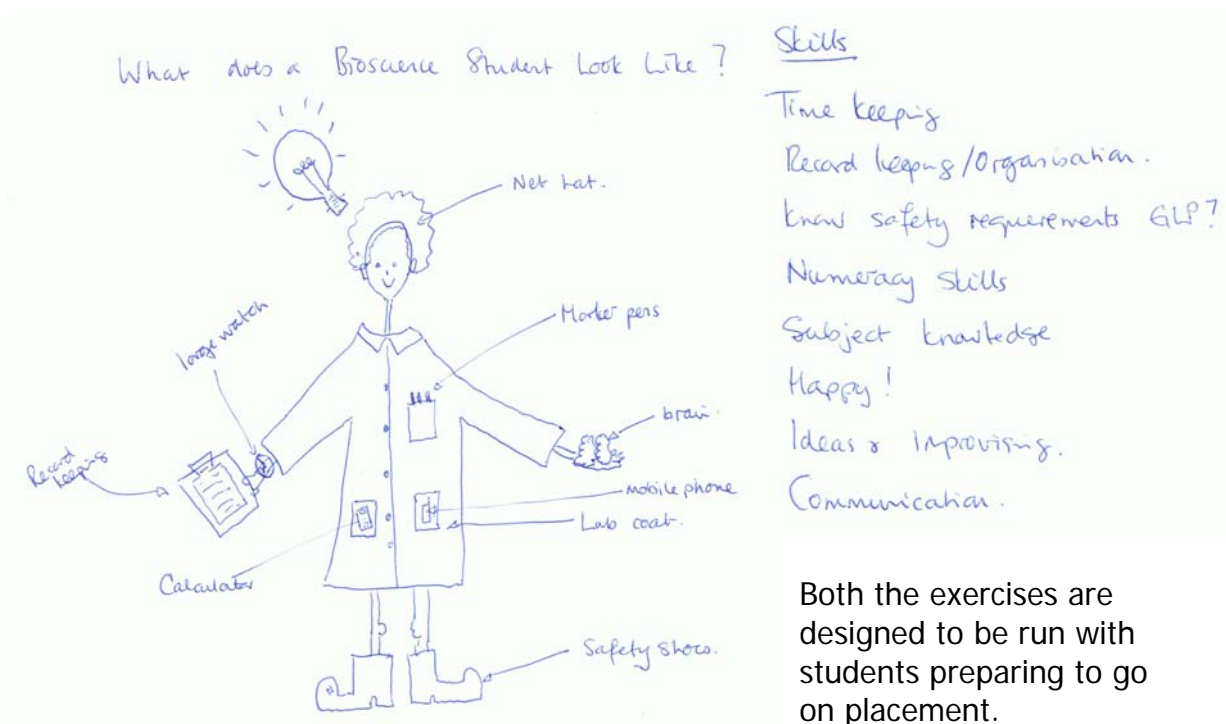 What does a Bioscience Student Look Like?
Net hat.
large watch
Marker pens
brain.
Record
keeping
mobile phone
Lab coat.
Calculator
Safety shoes.
Skills
Time keeping
Record keeping/Organisation.
Know safety requirements GLP?
Numeracy skills
Subject knowledge
Happy!
Ideas & improvising.
Communication.
Both the exercises are
designed to be run with
students preparing to go
on placement.